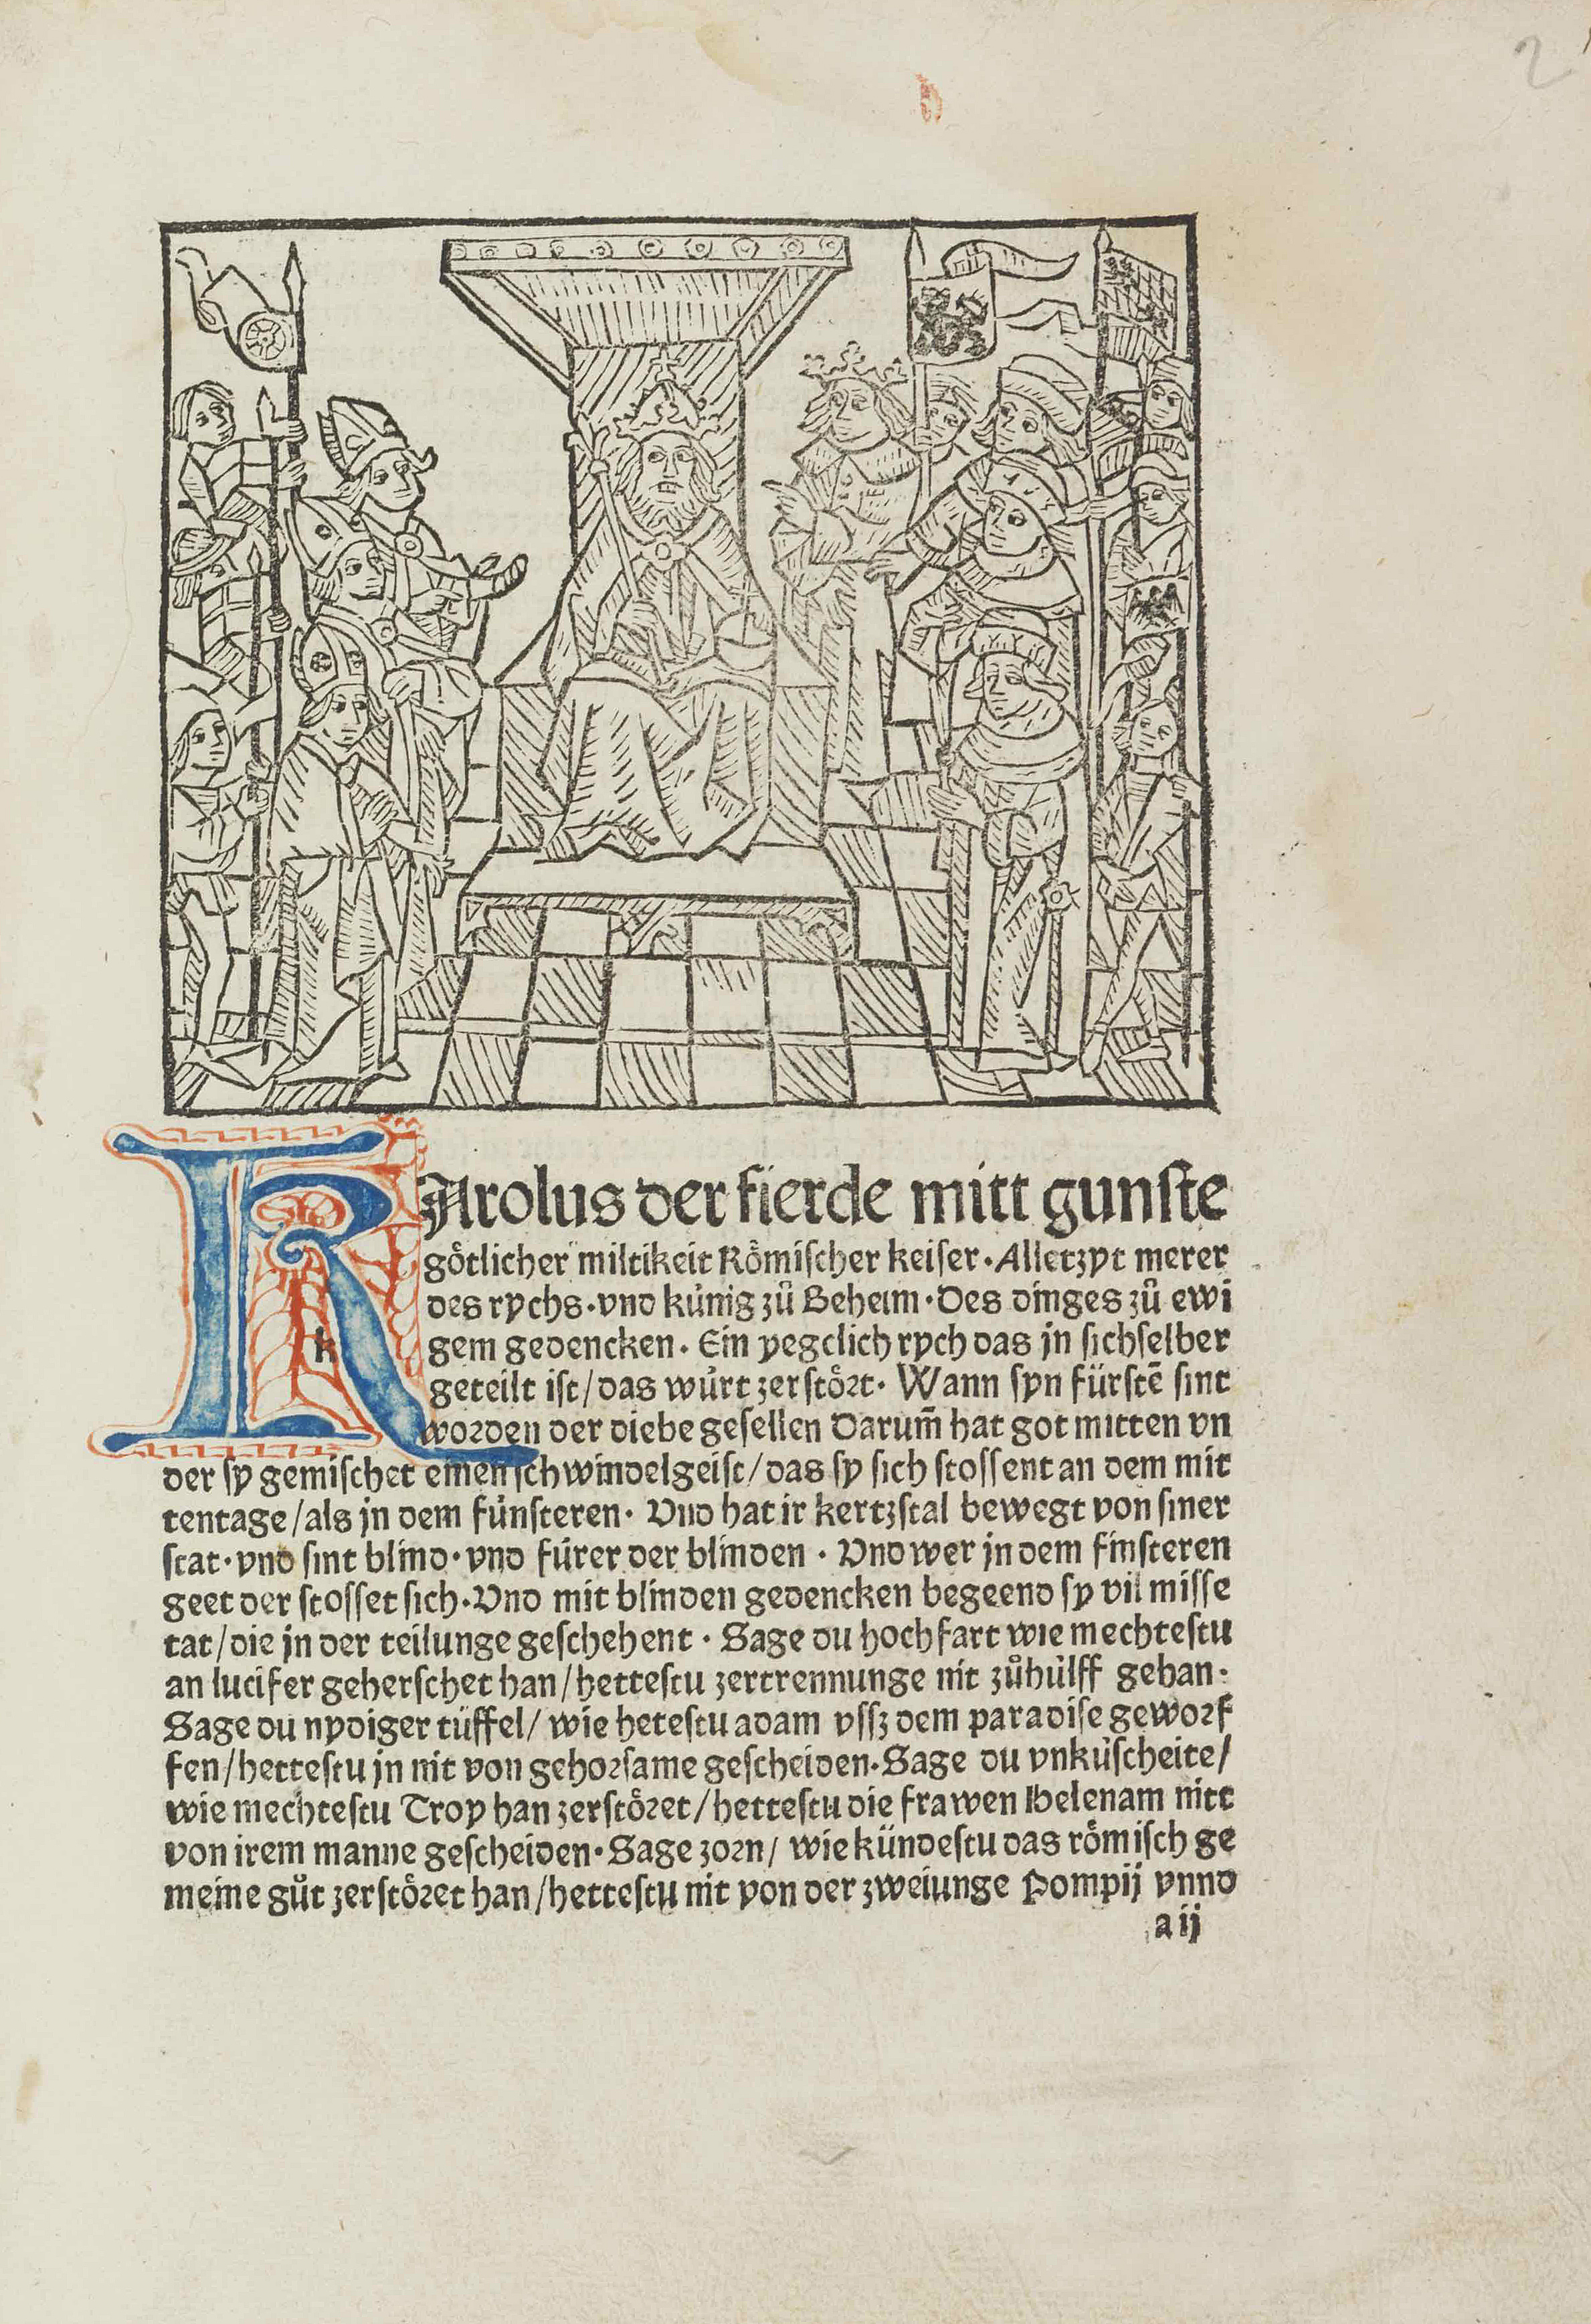 2
KArolus der fierde mitt gunste
götlicher miltikeit Römischer keiser. Alletzyt merer
des rychs. vnd kúnig zů Beheim. Des dinges zů ewi
gem gedencken. Ein yegclich rych das jn sichselber
k
geteilt ist/das wúrt zerstört. Wann syn fürstē sint
worden der diebe gesellen Darum̄ hat got mitten vn
der sy gemischet einen schwindelgeist/das sy sich stossent an dem mit
tentage/als jn dem fúnsteren. Vnd hat ir kertzstal bewegt von siner
stat. vnd sint blind. vnd fúrer der blinden. Vnd wer jn dem finsteren
geet der stosset sich. Vnd mit blinden gedencken begeend sy vil misse
tat/die jn der teilunge geschehent. Sage du hochfart wie mechtestu
an lucifer geherschet han/hettestu zertrennunge nit zůhúlff gehan.
Sage du nydiger tüffel/wie hetestu adam vssz dem paradise geworf
fen/hettestu jn nit von gehorsame gescheiden. Sage du vnkúscheite/
wie mechtestu Troy han zerstöret/hettestu die frawen Helenam nitt
von irem manne gescheiden. Sage zorn/wie kúndestu das römisch ge
meine gůt zerstöret han/hettestu nit von der zweiunge Pompij vnnd
a ij